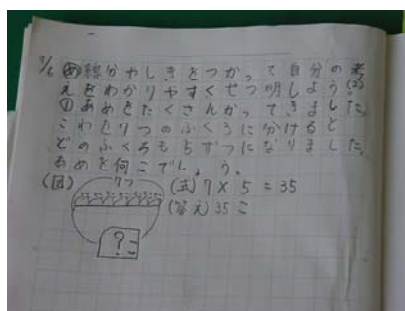 7/6 め 線分やしきをつかって自分の考
えをわかりやすくせつ明しよう。(2)
① あめをたくさんかってきました。
これを7つのふくろに分けると
どのふくろも5ずつになりました。
あめを何こでしょう。
(図) 7つ (式) 7×5=35
(答え) 35こ
?こ